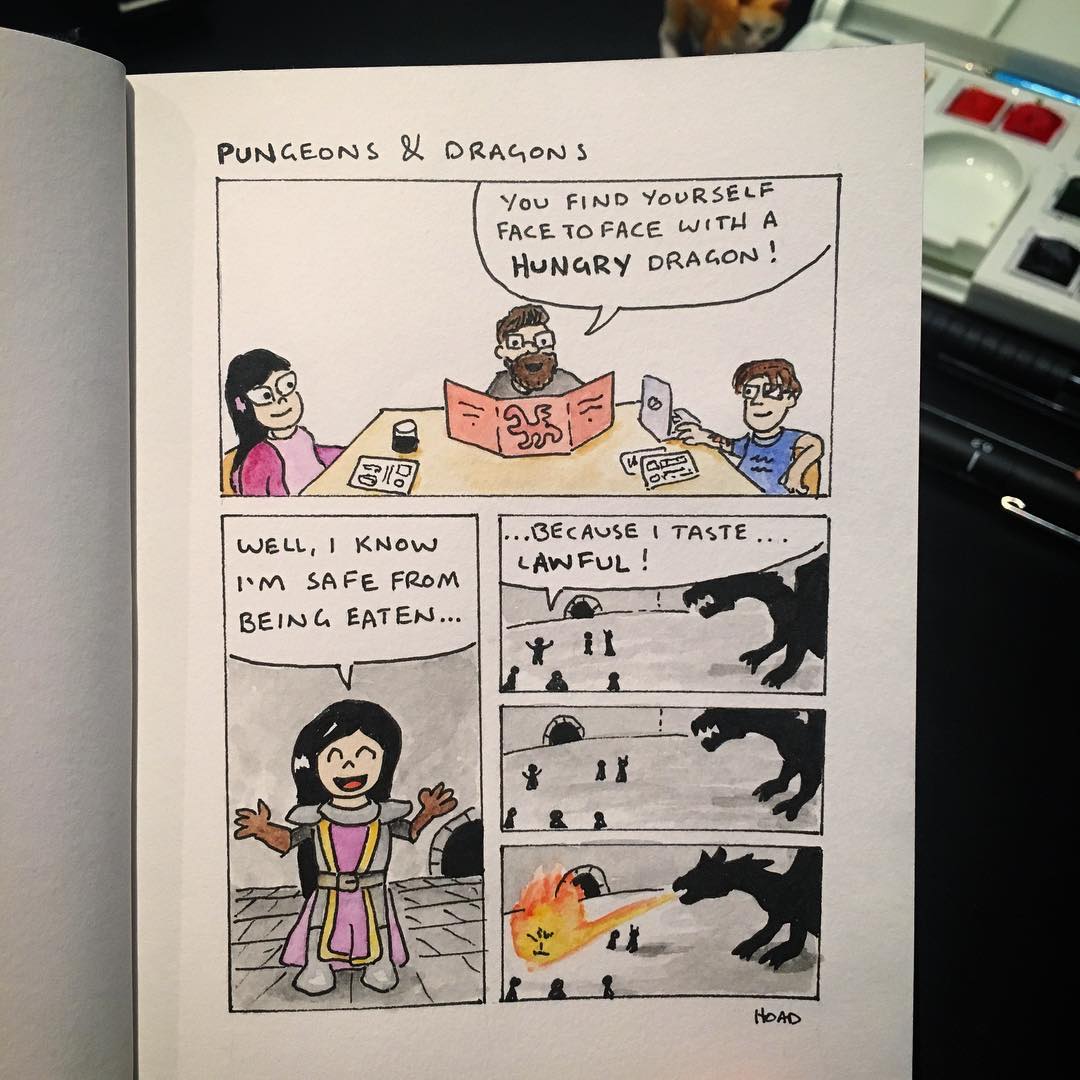 PUNGEONS & DRAGONS
YOU FIND YOURSELF
FACE TO FACE WITH A
HUNGRY DRAGON!
WELL, I KNOW
I'M SAFE FROM
BEING EATEN...
...BECAUSE I TASTE...
LAWFUL!
HOAD